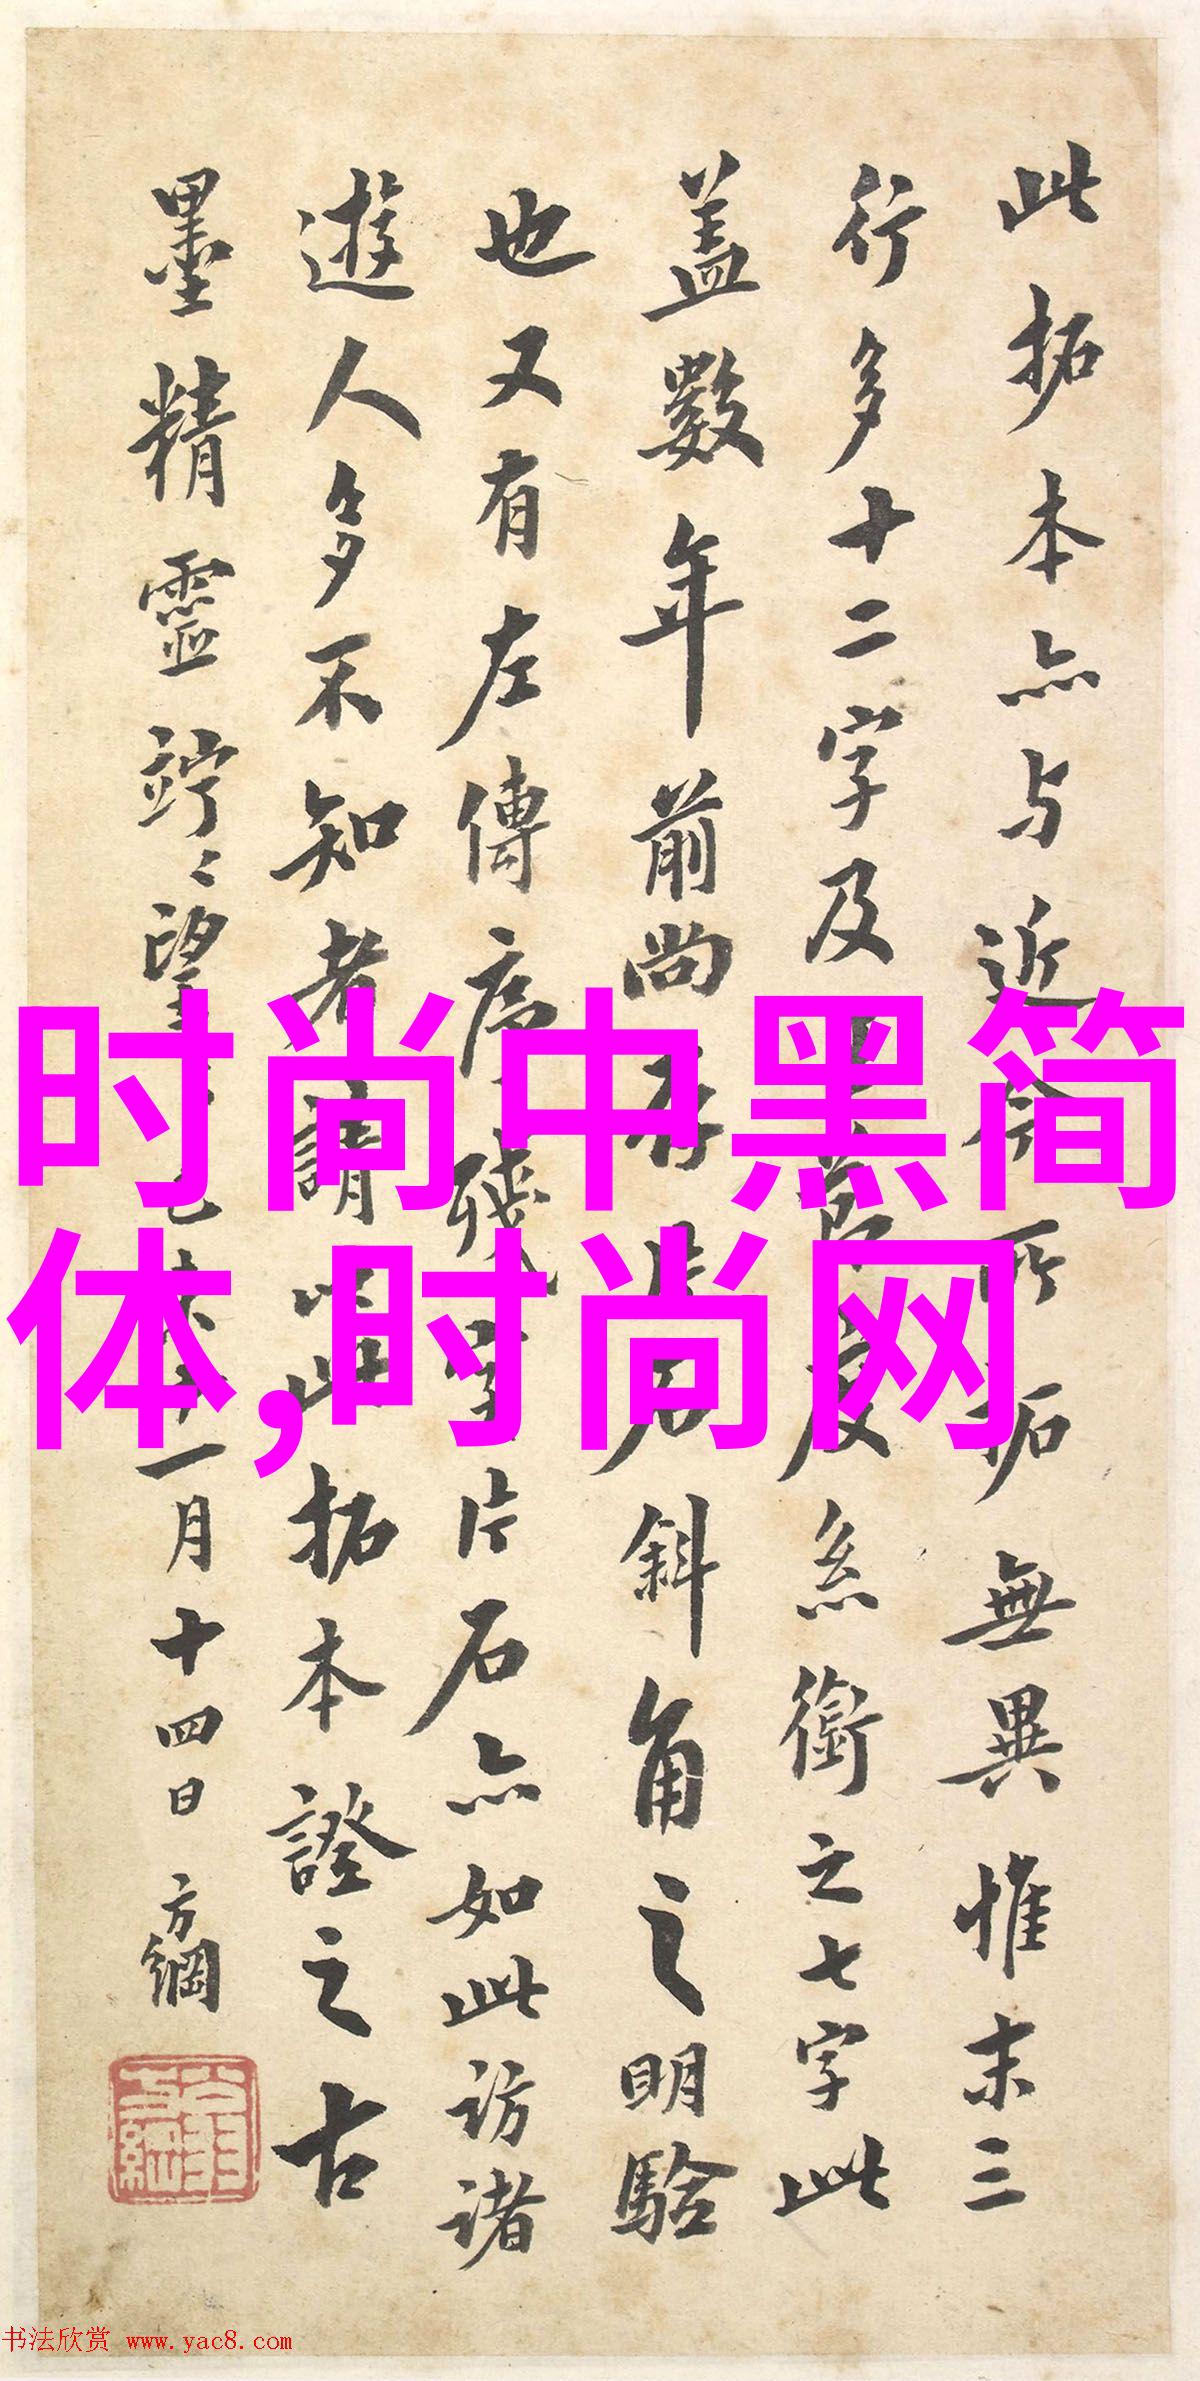 此拓本亦与近今所拓無異惟末三
行多十二字及系銜之七字此
蓋數年前尚存石斜角之明驗
也又有左傳殘字片石亦如此訪諸
遊人多不知者請以此拓本證之古
墨精靈竚〻望一月十四日 方綱
时尚中黑简
体,时尚网
书法欣赏 www.yac8.com